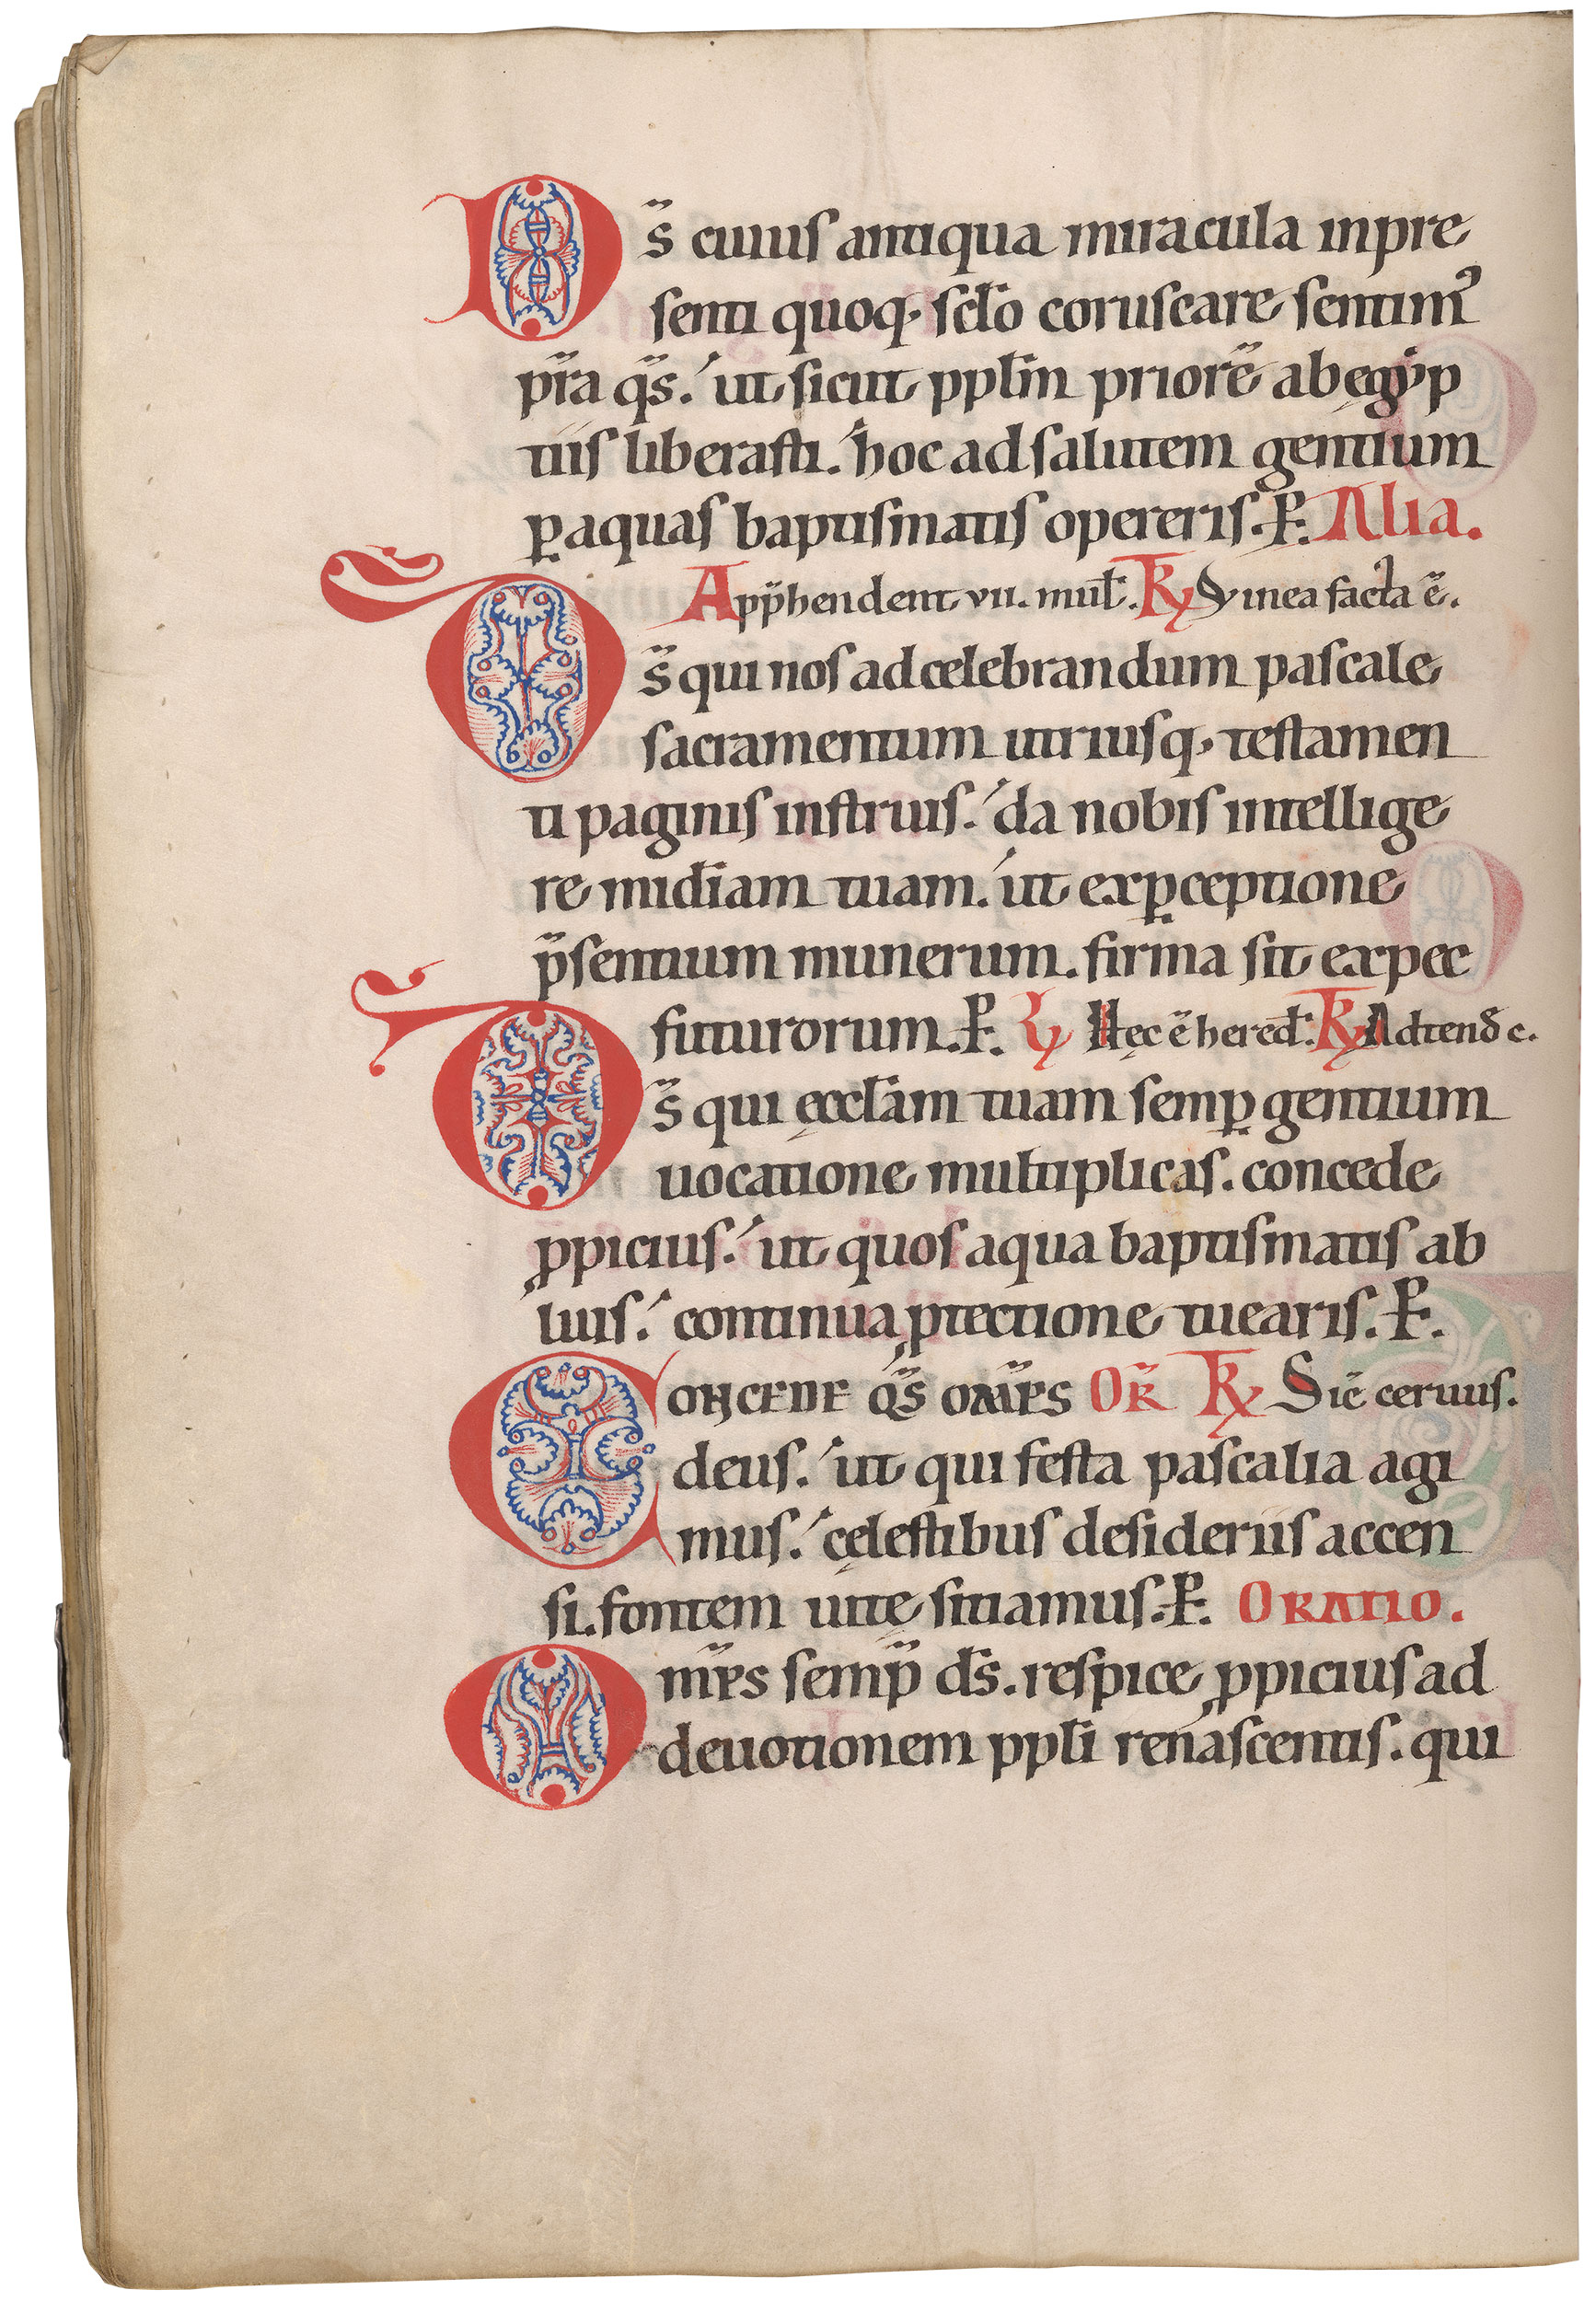 Ds̄ cuius antiqua miracula inpre
senti quoq. sc̄lo coruscare sentimꝰ
pr̄a qs̄. ut sicut ppl̄m priorē ab egyp
tiis liberasti. hoc ad salutem gentium
ꝑ aquas baptismatis opereris. P̄. Alia.
App̄hendent vii. mul̄. R̷ Vinea facta ē.
Ds̄ qui nos ad celebrandum pascale
sacramentum utriusq. testamen
ti paginis instruis. da nobis intellige
re mīdiam tuam. ut ex ꝑceptione
p̄sentium munerum. firma sit expec
futurorum. P̄. Hęc ē hered̄. R̷ Adtend̄ c.
Ds̄ qui ęccl̄am tuam semꝑ gentium
uocatione multiplicas. concede
ꝓpicius. ut quos aqua baptismatis ab
luis. continua ꝓtectione tuearis. P̄.
CONCEDE QS̄ OMP̄S OR̄ R̷ Sic̄ ceruus.
deus. ut qui festa pascalia agi
mus. cęlestibus desideriis accen
si. fontem uitę sitiamus. P̄. ORATIO.
Omp̄s semp̄ ds̄. respice ꝓpicius ad
deuotionem ppl̄i renascentis. qui